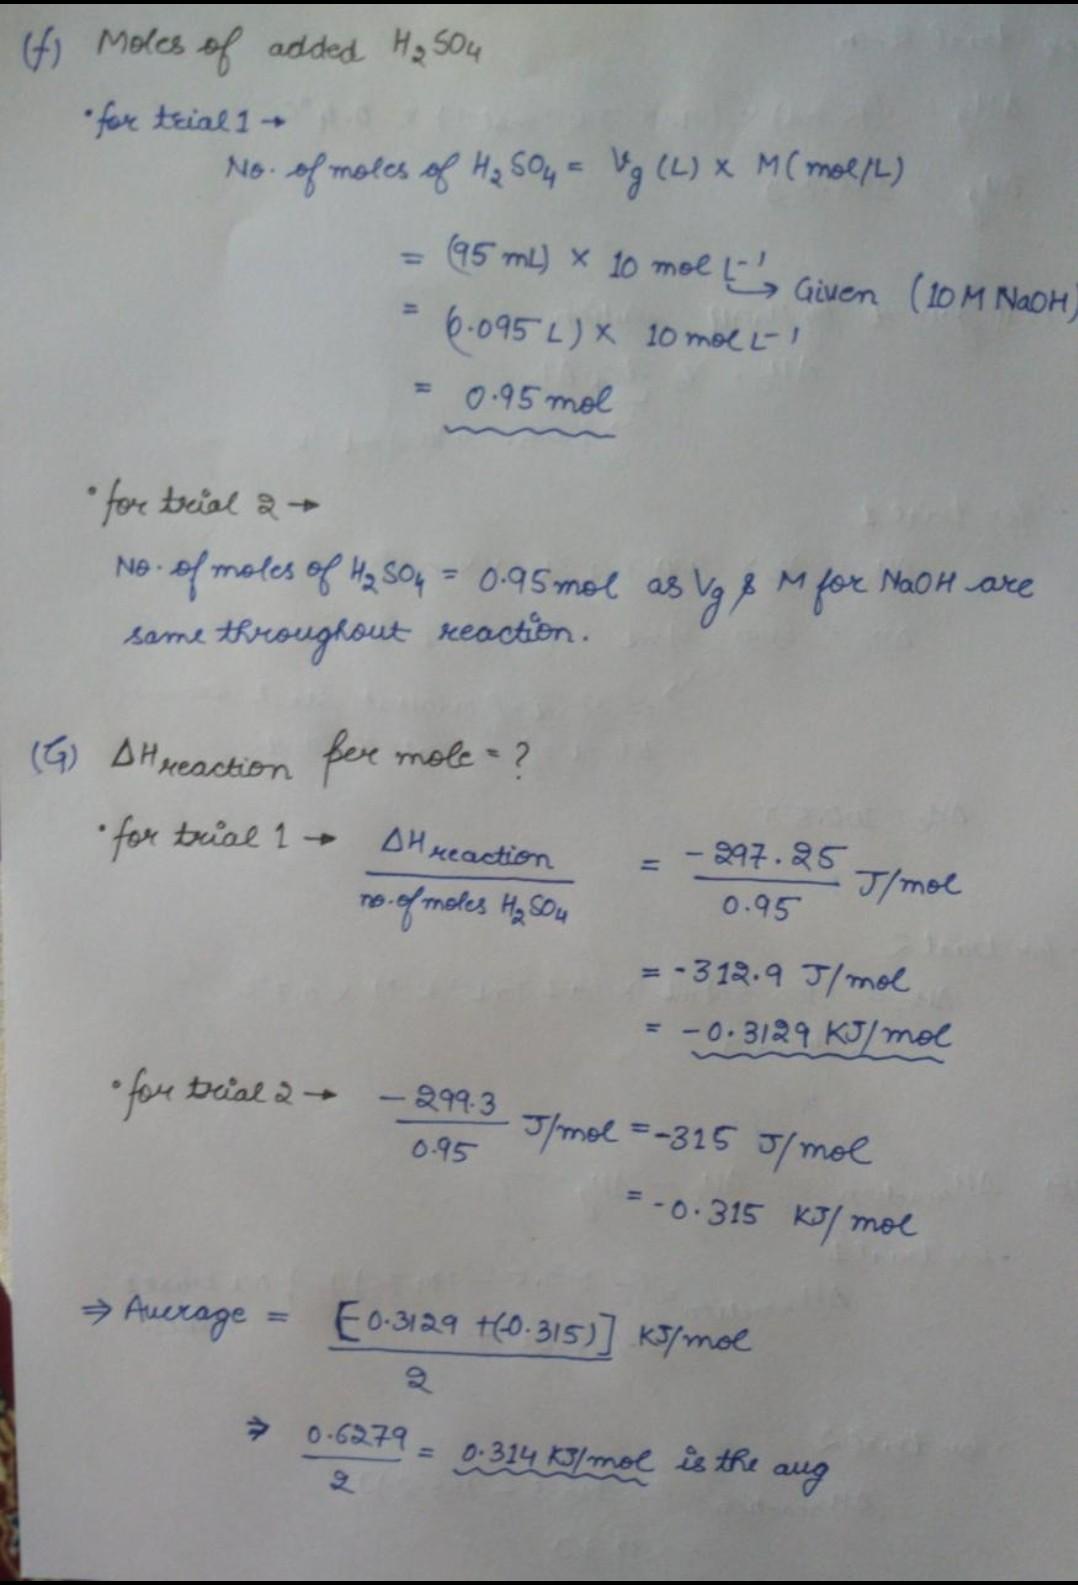 (f) Moles of added H₂SO₄
• for trial 1 →
No. of moles of H₂SO₄ = Vg (L) × M (mol/L)
= (95 mL) × 10 mol L⁻¹
↳ Given (10 M NaOH)
= (0.095 L) × 10 mol L⁻¹
= 0.95 mol
• for trial 2 →
No. of moles of H₂SO₄ = 0.95 mol as Vg & M for NaOH are
same throughout reaction.
(G) ΔHreaction per mole = ?
• for trial 1 → ΔHreaction / no. of moles H₂SO₄ = -297.25 / 0.95 J/mol
= -312.9 J/mol
= -0.3129 KJ/mol
• for trial 2 → -299.3 / 0.95 J/mol = -315 J/mol
= -0.315 KJ/mol
⇒ Average = [-0.3129 + (-0.315)] / 2 KJ/mol
⇒ 0.6279 / 2 = 0.314 KJ/mol is the avg